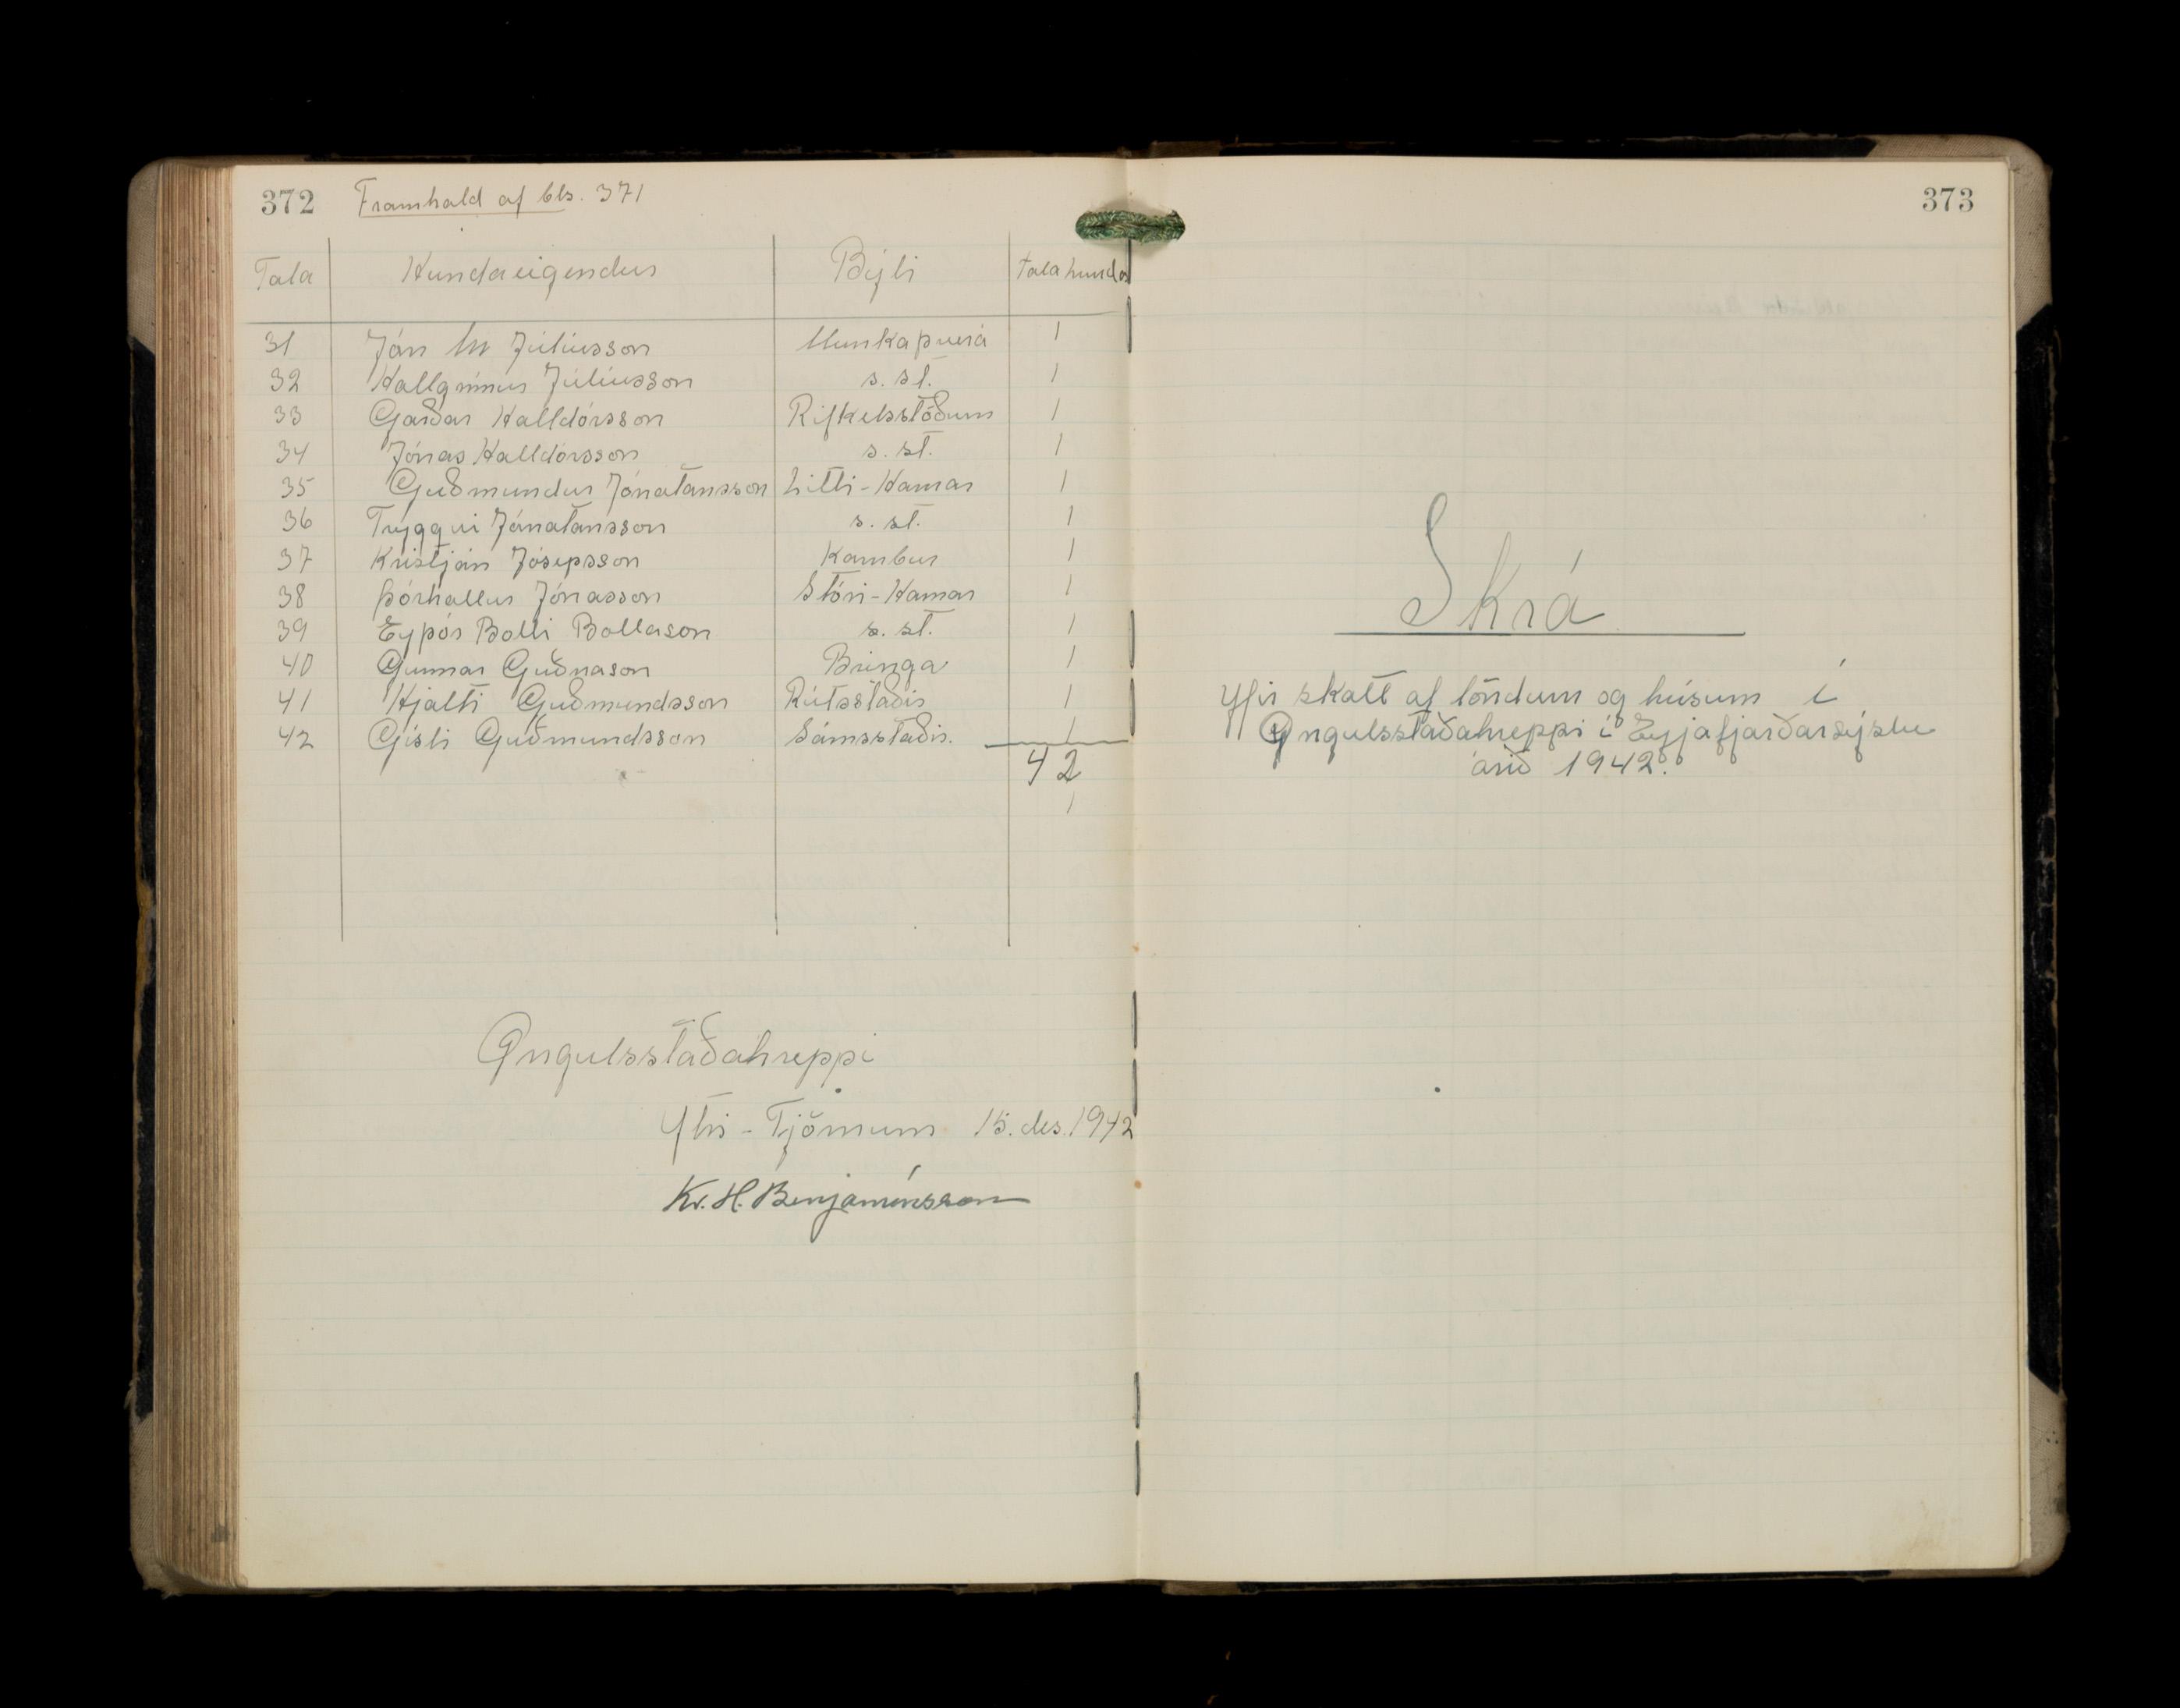 372 Framhald af bls. 371
Tala Hundaeigendur Býli tala hunda
31 Jón M Júlíusson Munkaþverá 1
32 Hallgrímur Júlíusson s. st. 1
33 Garðar Halldórsson Rifkelsstöðum 1
34 Jónas Halldórsson s. st. 1
35 Guðmundur Jónatansson Litli-Hamar 1
36 Tryggvi Jónatansson s. st. 1
37 Kristján Jósepsson Kambur 1
38 Þórhallur Jónasson Stóri-Hamar 1
39 Eyþór Bolli Bollason s. st. 1
40 Gunnar Guðnason Bringa 1
41 Hjalti Guðmundsson Rútsstaðir 1
42 Gísli Guðmundsson Sámsstaðir. 1
42
1
Öngulsstaðahreppi
Ytri-Tjörnum 15. des. 1942
Kr. H. Benjamínsson
373
Skrá
Yfir skatt af löndum og húsum í
Öngulsstaðahreppi í Eyjafjarðarsýslu
árið 1942.